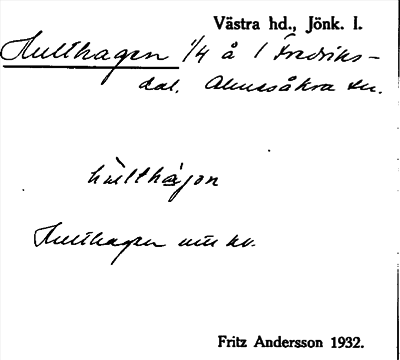 Västra hd., Jönk. l.
Hulthagen 1/4 å 1 Fredriks-
dal. Almesåkra sn.
hùlthágɷn
Hulthagen nu kv.
Fritz Andersson 1932.